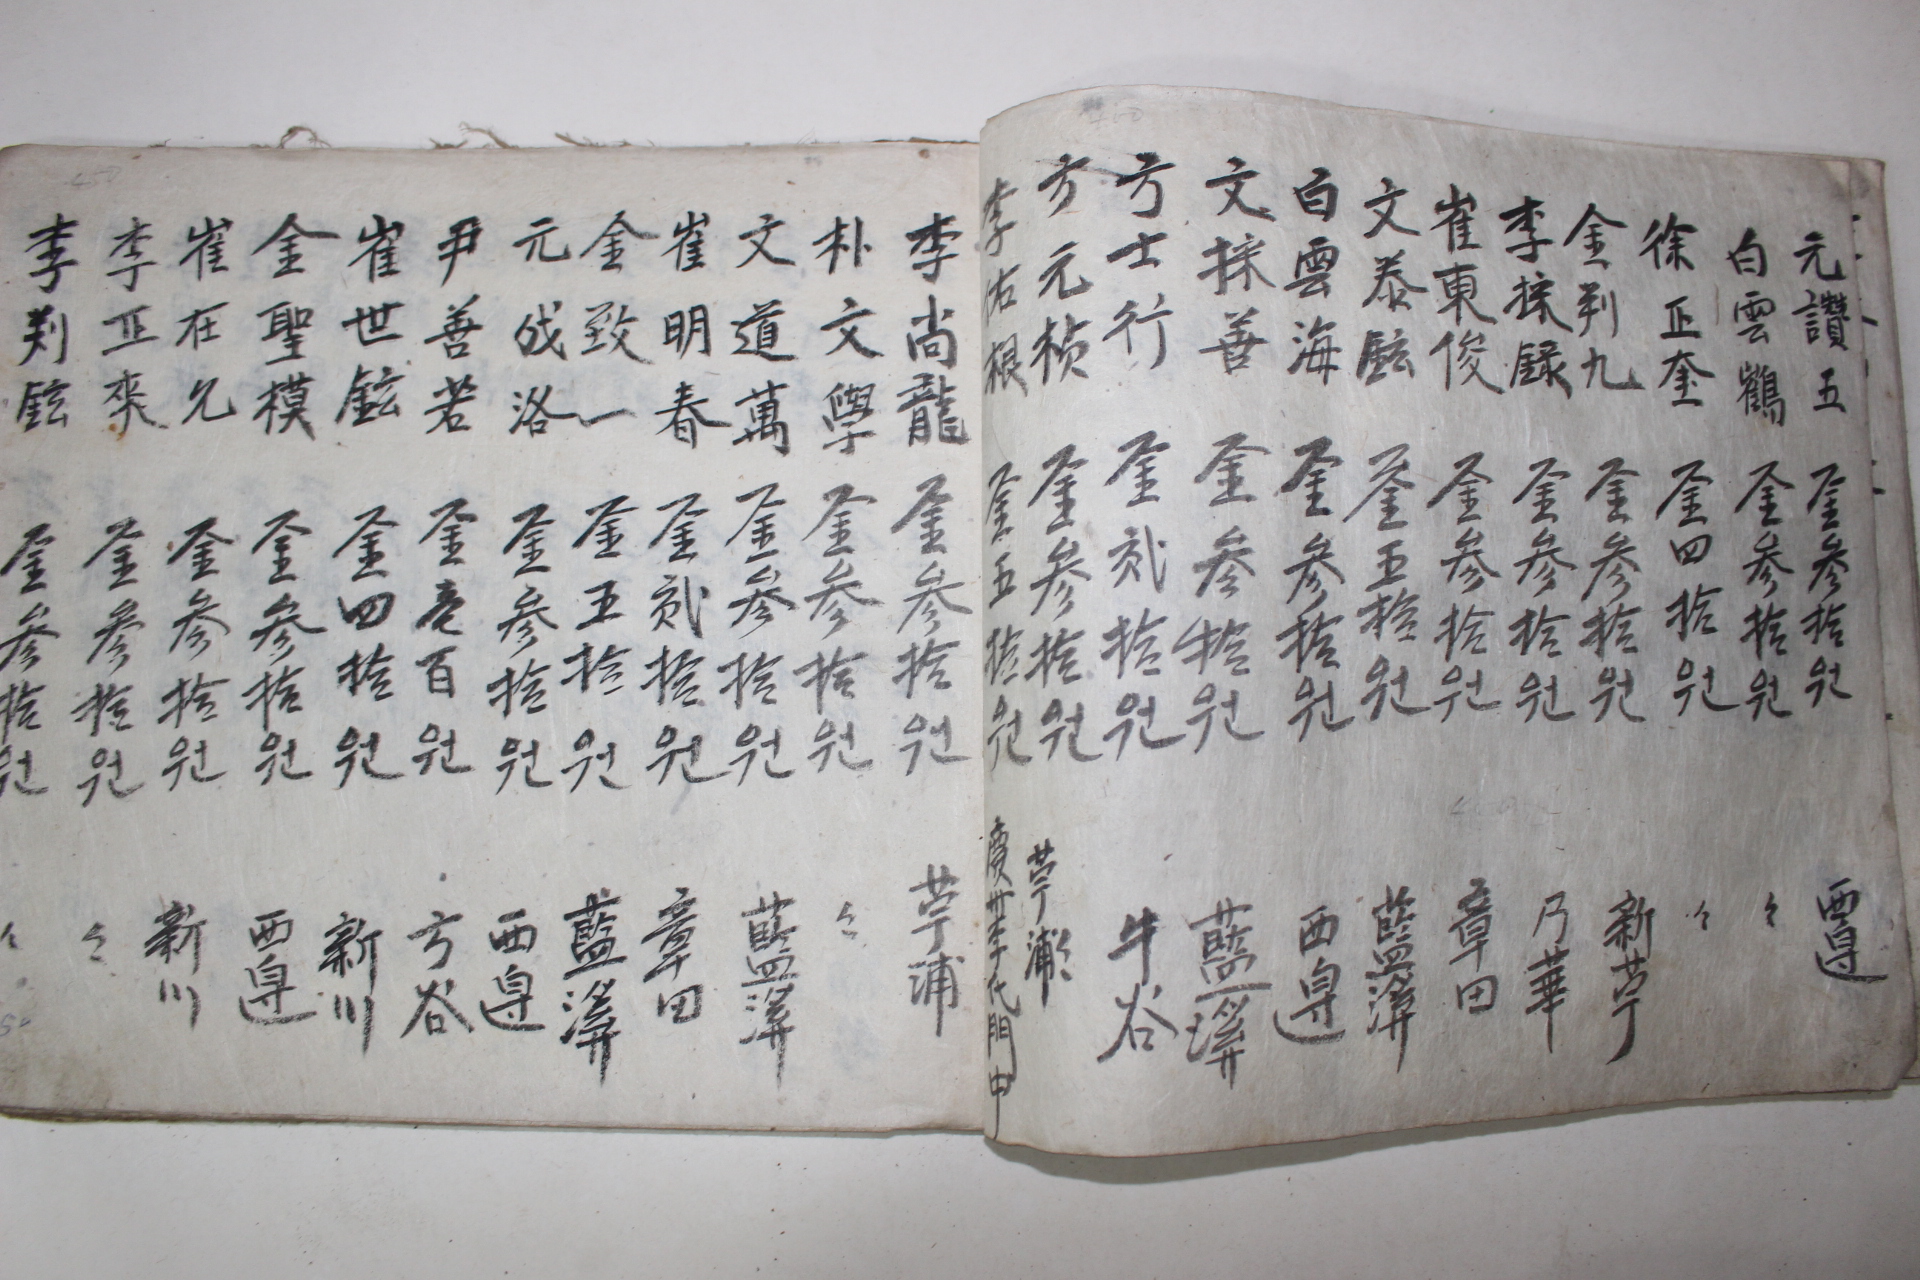 元讚五 金參拾원 西邊
白雲鶴 金參拾원 々
徐正奎 金四拾원 々
金判九 金參拾원 新苧
李採録 金參拾원 乃華
崔東俊 金參拾원 章田
文泰鉉 金五拾원 藍澤
白雲海 金參拾원 西邊
文採善 金參拾원 藍
方士行 金貳拾원 牛谷
方元楨 金參拾원 苧浦
李佑根 金五拾원 慶州李氏門中
李尚龍 金參拾원 苧浦
朴文學 金參拾원 々
文道萬 金參拾원 藍澤
崔明春 金貳拾원 章田
金致一 金五拾원 藍
元成洛 金參拾원 西邊
尹善若 金壱百원 方谷
崔世鉉 金四拾원 新川
金聖模 金參拾원 西邊
崔在允 金參拾원 新川
李正來 金參拾원 々
李判鉉 金參拾원 々